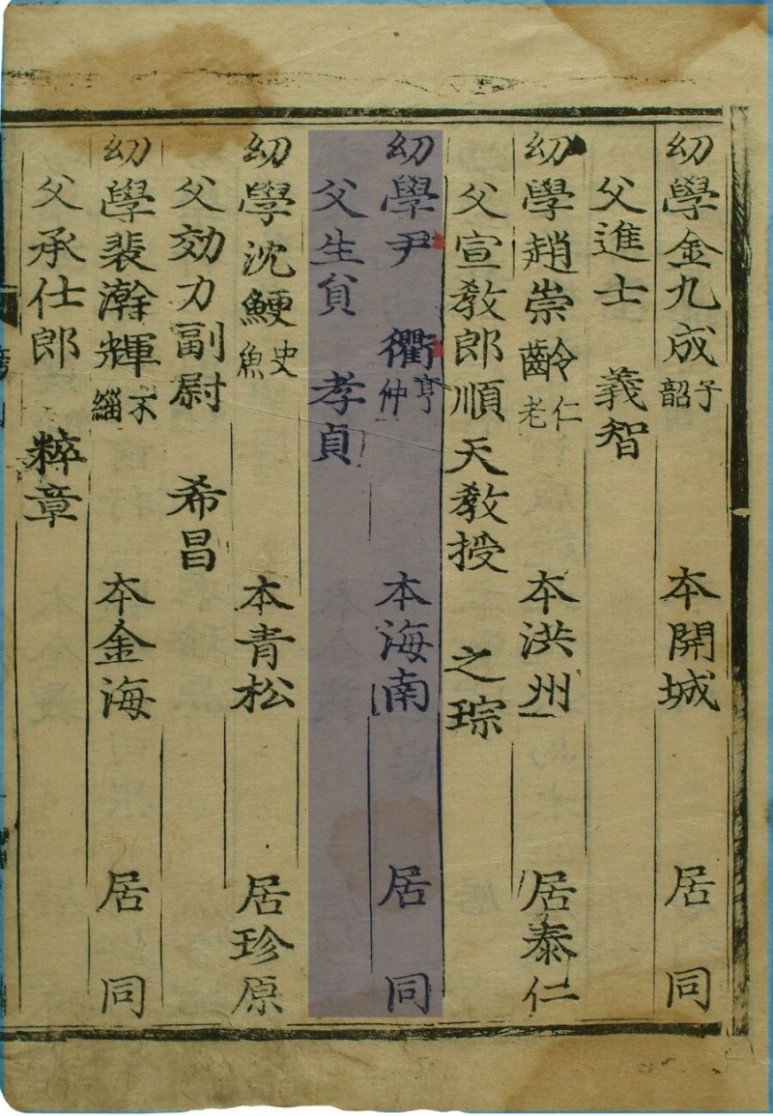 幼學金九成子韶 本開城 居同
父進士 義智
幼學趙崇齡仁老 本洪州 居泰仁
父宣教郎順天教授 之琮
幼學尹 衢亨仲 本海南 居同
父生貟 孝貞
幼學沈鯁史魚 本青松 居珍原
父効力副尉 希昌
幼學裴瀚輝不緇 本金海 居同
父承仕郎 粹章